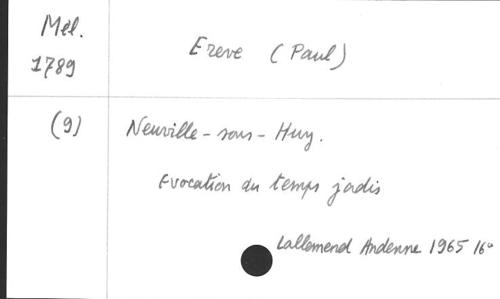 Mél.
1789
Ereve (Paul)
(9)
Neuville-sous-Huy.
Evocation du temps jadis
Lallemend Andenne 1965 16°